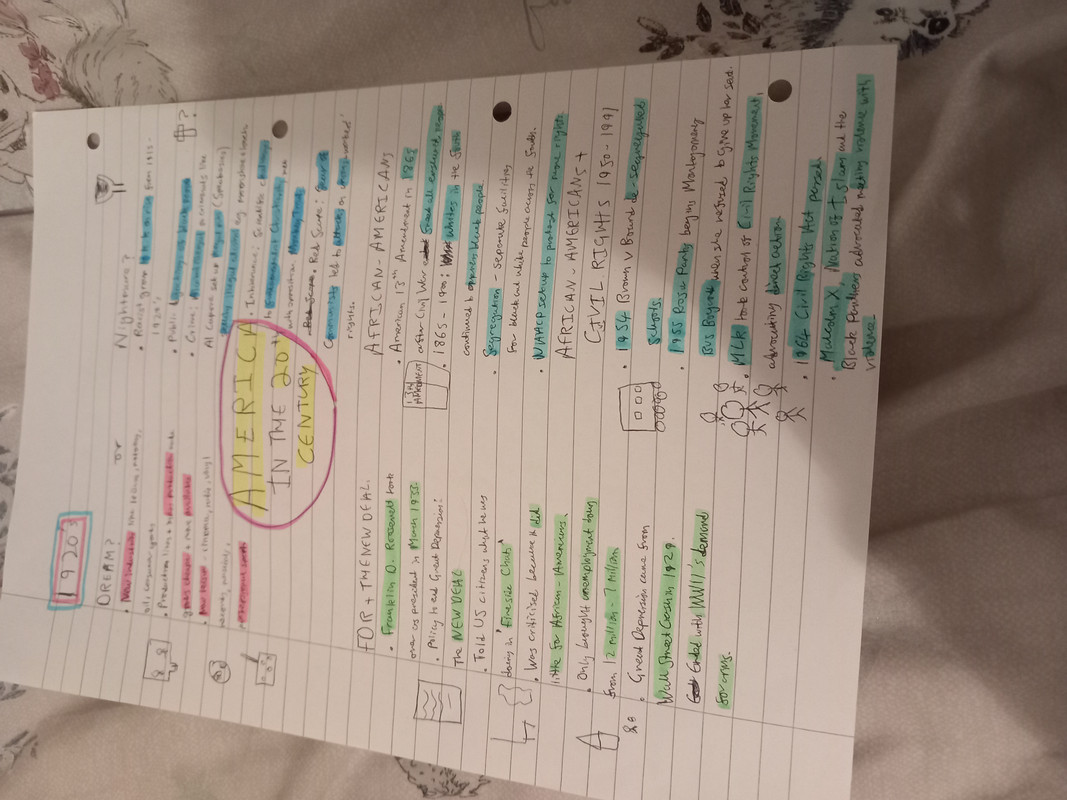 1920's
DREAM?
or
Nightmare?
• New industries like telling,
gils, consumer goods
• Production lines + new production made
goods cheaper + more available
• New leisure - cinema, radio, vinyl
records,
• Racist group KKK grew from 1915
1920's
• Public
• Crime:
Al Capone set up (Speakeasies)
• Intolerance:
with opposition Monkey Trial
• Red Scare: fear of
Communists led to attacks on workers'
rights.
AMERICA
IN THE 20TH
CENTURY
FDR + THE NEW DEAL.
• Franklin D. Roosevelt took
over as president in March 1933.
• Policy to end Great Depression:
The NEW DEAL
• Told US citizens what he was
doing in 'Fireside Chats'
• Was criticised because it did
little for African-Americans.
• Only brought unemployment down
from 12 million - 7 million
• Great Depression came from
Wall Street Crash in 1929.
Ended with WWII's demand
for arms.
AFRICAN-AMERICANS
• American 13th Amendment in 1865
after Civil War freed all enslaved people
13th
AMENDMENT
• 1865 - 1900: whites in the South
continued to oppress black people
• Segregation - separate facilities
for black and white people across the South.
• NAACP set up to protest for more rights
AFRICAN-AMERICANS +
CIVIL RIGHTS 1950-1991
• 1954 Brown v Board de-segregated
schools.
• 1955 Rosa Parks begins Montgomery
Bus Boycott when she refused to give up her seat.
• MLK took control of Civil Rights Movement,
advocating direct action
• 1964 Civil Rights Act passed
• Malcolm X, Nation of Islam and the
Black Panthers advocated meeting violence with
violence